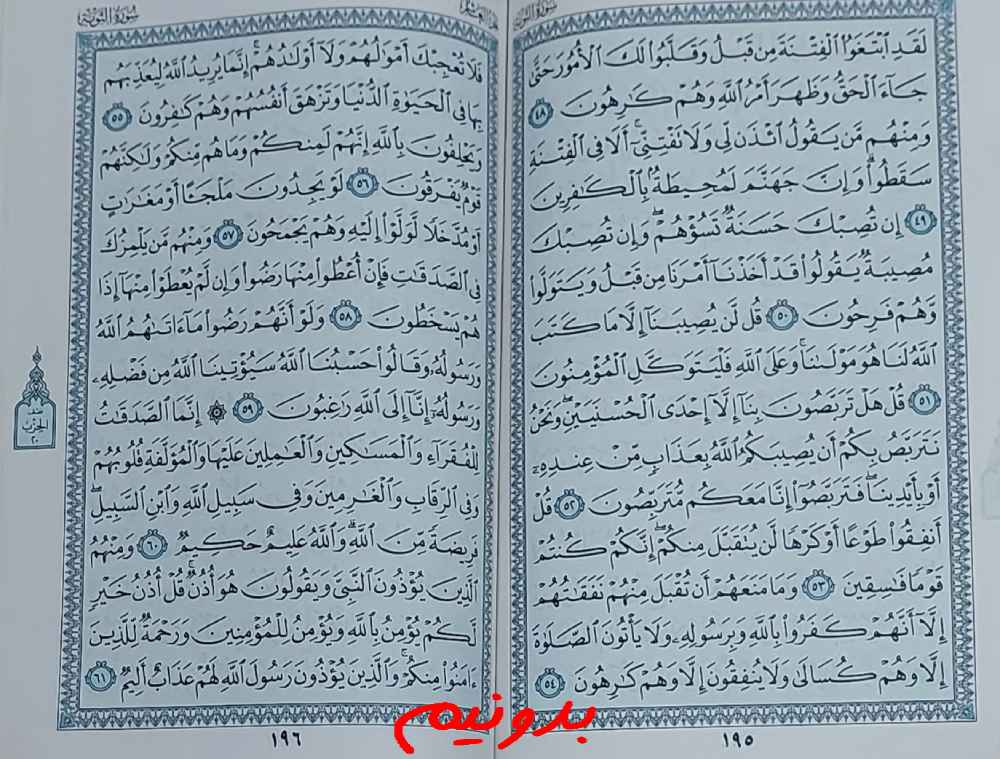 سُورَةُ التَّوْبَةِ
لَقَدِ ابْتَغَوُا الْفِتْنَةَ مِن قَبْلُ وَقَلَّبُوا لَكَ الْأُمُورَ حَتَّىٰ
جَاءَ الْحَقُّ وَظَهَرَ أَمْرُ اللَّهِ وَهُمْ كَارِهُونَ ٤٨
وَمِنْهُم مَّن يَقُولُ ائْذَن لِّي وَلَا تَفْتِنِّي ۚ أَلَا فِي الْفِتْنَةِ
سَقَطُوا ۗ وَإِنَّ جَهَنَّمَ لَمُحِيطَةٌ بِالْكَافِرِينَ
٤٩ إِن تُصِبْكَ حَسَنَةٌ تَسُؤْهُمْ ۖ وَإِن تُصِبْكَ
مُصِيبَةٌ يَقُولُوا قَدْ أَخَذْنَا أَمْرَنَا مِن قَبْلُ وَيَتَوَلَّوا
وَّهُمْ فَرِحُونَ ٥٠ قُل لَّن يُصِيبَنَا إِلَّا مَا كَتَبَ
اللَّهُ لَنَا هُوَ مَوْلَانَا ۚ وَعَلَى اللَّهِ فَلْيَتَوَكَّلِ الْمُؤْمِنُونَ
٥١ قُلْ هَلْ تَرَبَّصُونَ بِنَا إِلَّا إِحْدَى الْحُسْنَيَيْنِ ۖ وَنَحْنُ
نَتَرَبَّصُ بِكُمْ أَن يُصِيبَكُمُ اللَّهُ بِعَذَابٍ مِّنْ عِندِهِ
أَوْ بِأَيْدِينَا ۖ فَتَرَبَّصُوا إِنَّا مَعَكُم مُّتَرَبِّصُونَ ٥٢ قُلْ
أَنفِقُوا طَوْعًا أَوْ كَرْهًا لَّن يُتَقَبَّلَ مِنكُمْ ۖ إِنَّكُمْ كُنتُمْ
قَوْمًا فَاسِقِينَ ٥٣ وَمَا مَنَعَهُمْ أَن تُقْبَلَ مِنْهُمْ نَفَقَاتُهُمْ
إِلَّا أَنَّهُمْ كَفَرُوا بِاللَّهِ وَبِرَسُولِهِ وَلَا يَأْتُونَ الصَّلَاةَ
إِلَّا وَهُمْ كُسَالَىٰ وَلَا يُنفِقُونَ إِلَّا وَهُمْ كَارِهُونَ ٥٤
١٩٥
سُورَةُ التَّوْبَةِ
فَلَا تُعْجِبْكَ أَمْوَالُهُمْ وَلَا أَوْلَادُهُمْ ۚ إِنَّمَا يُرِيدُ اللَّهُ لِيُعَذِّبَهُم
بِهَا فِي الْحَيَاةِ الدُّنْيَا وَتَزْهَقَ أَنفُسُهُمْ وَهُمْ كَافِرُونَ ٥٥
وَيَحْلِفُونَ بِاللَّهِ إِنَّهُمْ لَمِنكُمْ وَمَا هُم مِّنكُمْ وَلَٰكِنَّهُمْ
قَوْمٌ يَفْرَقُونَ ٥٦ لَوْ يَجِدُونَ مَلْجَأً أَوْ مَغَارَاتٍ
أَوْ مُدَّخَلًا لَّوَلَّوْا إِلَيْهِ وَهُمْ يَجْمَحُونَ ٥٧ وَمِنْهُم مَّن يَلْمِزُكَ
فِي الصَّدَقَاتِ فَإِنْ أُعْطُوا مِنْهَا رَضُوا وَإِن لَّمْ يُعْطَوْا مِنْهَا إِذَا
هُمْ يَسْخَطُونَ ٥٨ وَلَوْ أَنَّهُمْ رَضُوا مَا آتَاهُمُ اللَّهُ
وَرَسُولُهُ وَقَالُوا حَسْبُنَا اللَّهُ سَيُؤْتِينَا اللَّهُ مِن فَضْلِهِ
وَرَسُولُهُ إِنَّا إِلَى اللَّهِ رَاغِبُونَ ٥٩ ۞ إِنَّمَا الصَّدَقَاتُ
لِلْفُقَرَاءِ وَالْمَسَاكِينِ وَالْعَامِلِينَ عَلَيْهَا وَالْمُؤَلَّفَةِ قُلُوبُهُمْ
وَفِي الرِّقَابِ وَالْغَارِمِينَ وَفِي سَبِيلِ اللَّهِ وَابْنِ السَّبِيلِ ۖ
فَرِيضَةً مِّنَ اللَّهِ ۗ وَاللَّهُ عَلِيمٌ حَكِيمٌ ٦٠ وَمِنْهُمُ
الَّذِينَ يُؤْذُونَ النَّبِيَّ وَيَقُولُونَ هُوَ أُذُنٌ ۚ قُلْ أُذُنُ خَيْرٍ
لَّكُمْ يُؤْمِنُ بِاللَّهِ وَيُؤْمِنُ لِلْمُؤْمِنِينَ وَرَحْمَةٌ لِّلَّذِينَ
آمَنُوا مِنكُمْ ۚ وَالَّذِينَ يُؤْذُونَ رَسُولَ اللَّهِ لَهُمْ عَذَابٌ أَلِيمٌ ٦١
نصف
الحزب
٢٠
١٩٦
بدونيم